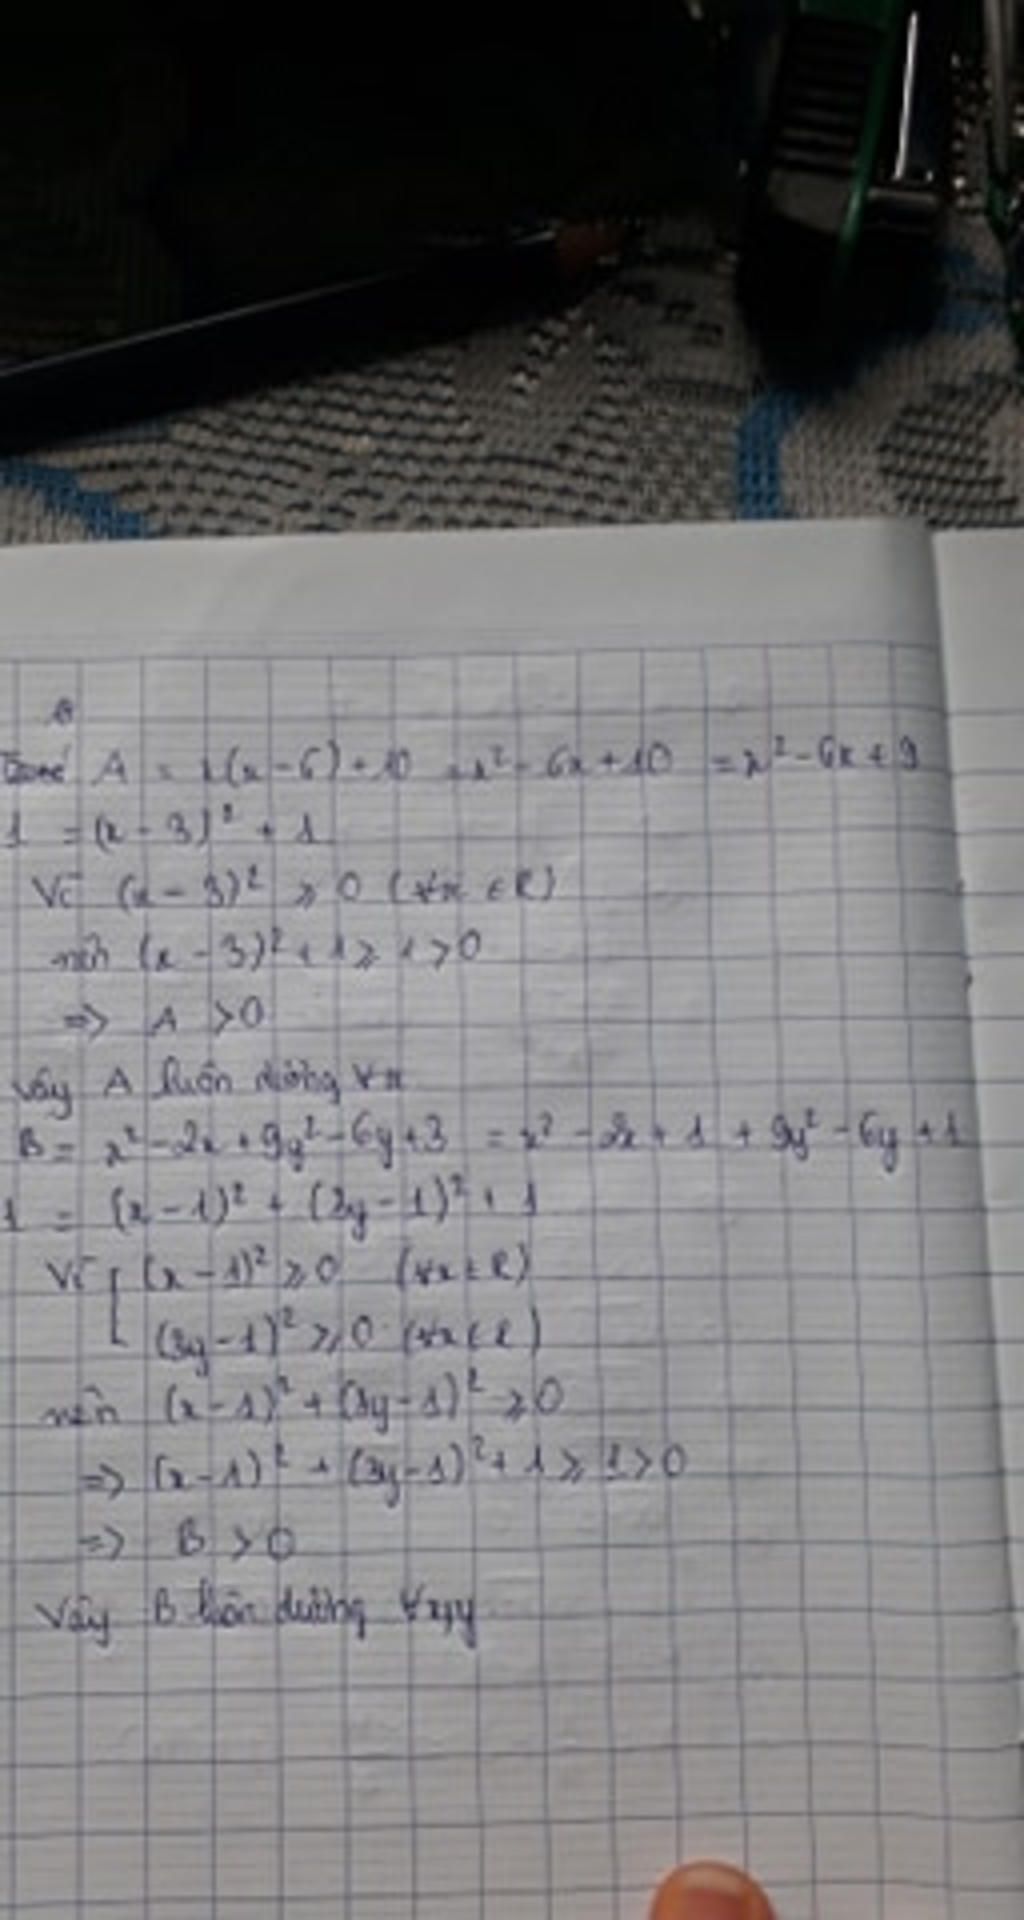 A = x(x-6)+10 = x² - 6x + 10 = x² - 6x + 9
1 = (x - 3)² + 1
Vì (x - 3)² ≥ 0 (∀x ∈ R)
nên (x - 3)² + 1 ≥ 1 > 0
=> A > 0
Vậy A luôn dương ∀x
B = x² - 2x + 9y² - 6y + 3 = x² - 2x + 1 + 9y² - 6y + 1
1 = (x - 1)² + (3y - 1)² + 1
Vì [ (x - 1)² ≥ 0 (∀x ∈ R)
(3y - 1)² ≥ 0 (∀x ∈ R)
nên (x - 1)² + (3y - 1)² ≥ 0
=> (x - 1)² + (3y - 1)² + 1 ≥ 1 > 0
=> B > 0
Vậy B luôn dương ∀x,y